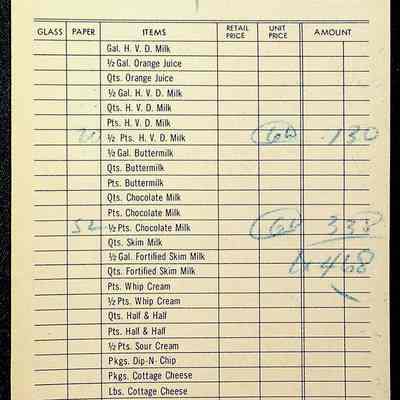 GLASS PAPER ITEMS RETAIL PRICE UNIT PRICE AMOUNT
Gal. H. V. D. Milk
½ Gal. Orange Juice
Qts. Orange Juice
½ Gal. H. V. D. Milk
Qts. H. V. D. Milk
Pts. H. V. D. Milk
20 ½ Pts. H. V. D. Milk 130
½ Gal. Buttermilk
Qts. Buttermilk
Pts. Buttermilk
Qts. Chocolate Milk
Pts. Chocolate Milk
52 ½ Pts. Chocolate Milk 338
Qts. Skim Milk
½ Gal. Fortified Skim Milk 468
Qts. Fortified Skim Milk
Pts. Whip Cream
½ Pts. Whip Cream
Qts. Half & Half
Pts. Half & Half
½ Pts. Sour Cream
Pkgs. Dip-N- Chip
Pkgs. Cottage Cheese
Lbs. Cottage Cheese